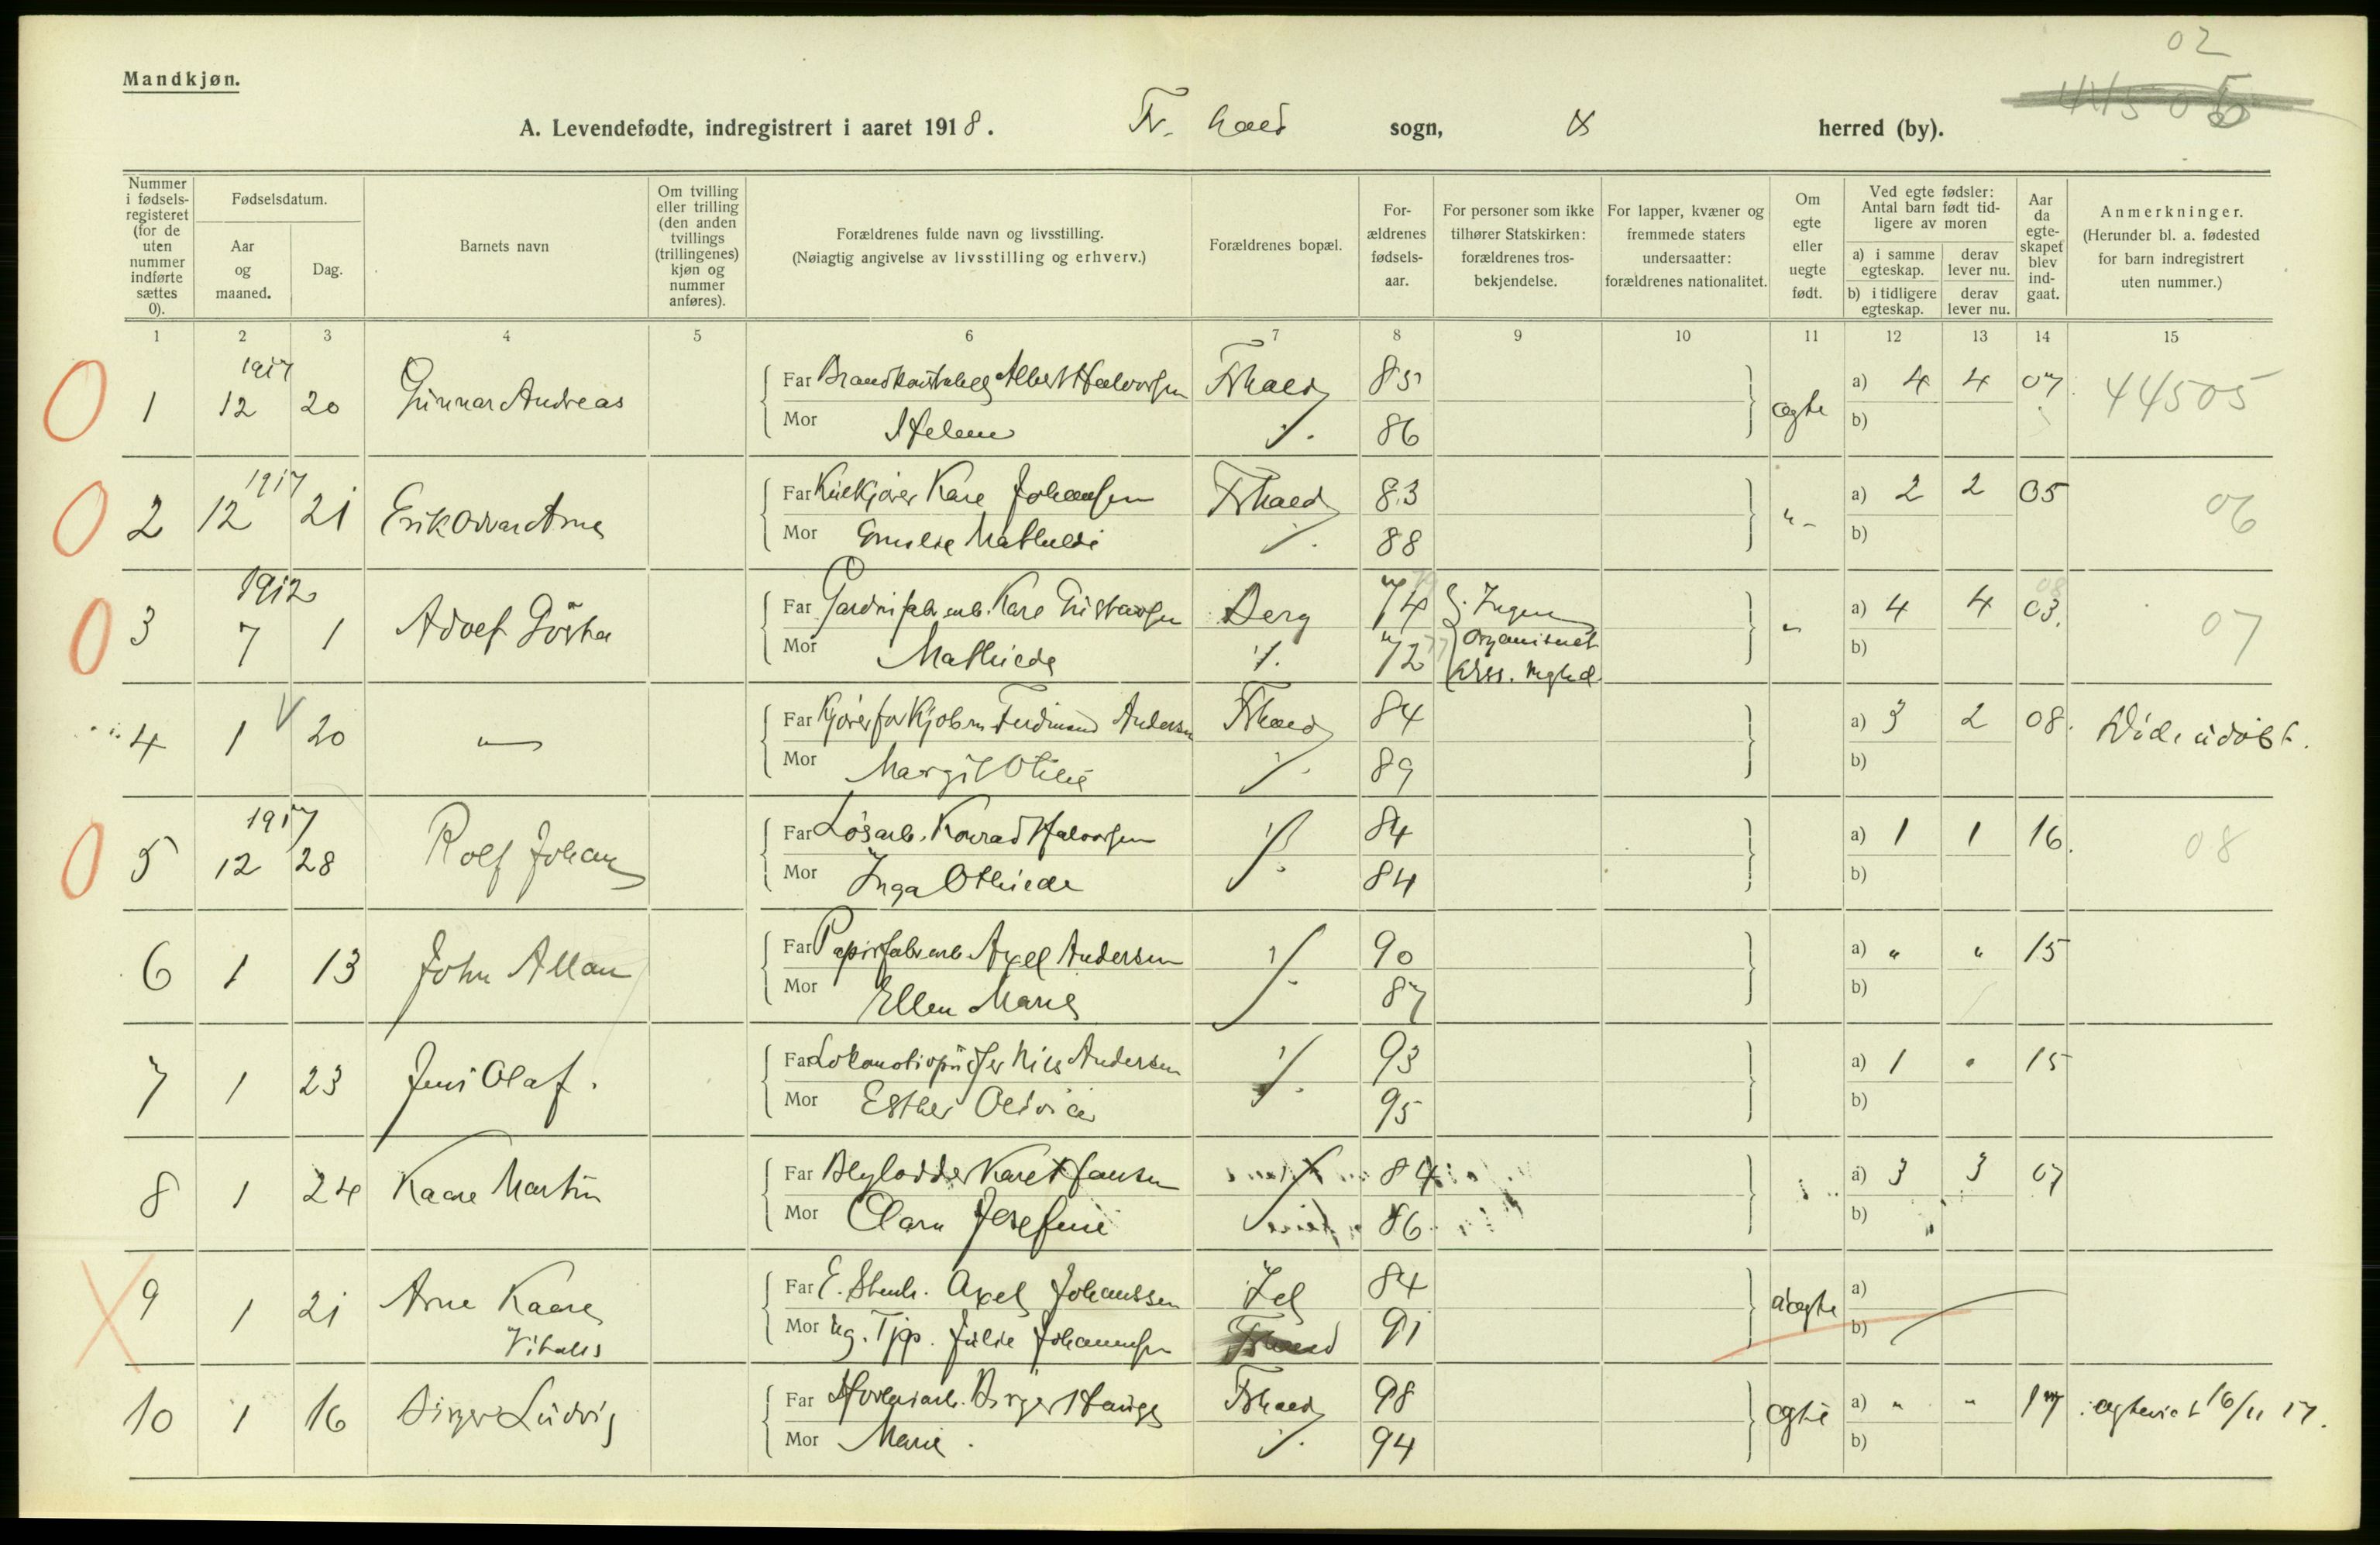 02
Mandkjøn.
A. Levendefødte, indregistrert i aaret 1918. Fr. hald sogn, herred (by).
Nummer i fødselsregisteret (for de uten nummer indførte sættes 0).
Fødselsdatum.
Aar og maaned.
Dag.
Barnets navn
Om tvilling eller trilling (den anden tvillings (trillingenes) kjøn og nummer anføres).
Forældrenes fulde navn og livsstilling.
(Nøiagtig angivelse av livsstilling og erhverv.)
Forældrenes bopæl.
Forældrenes fødselsaar.
For personer som ikke tilhører Statskirken: forældrenes trosbekjendelse.
For lapper, kvæner og fremmede staters undersaatter: forældrenes nationalitet.
Om egte eller uegte født.
Ved egte fødsler: Antal barn født tidligere av moren
a) i samme egteskap. derav lever nu.
b) i tidligere egteskap. derav lever nu.
Aar da egteskapet blev indgaat.
Anmerkninger.
(Herunder bl. a. fødested for barn indregistrert uten nummer.)
1 2 3 4 5 6 7 8 9 10 11 12 13 14 15
1917
1 12 20 Gunnar Andreas Far Brandkonstabel Albert Halvorsen Frhald 85 ægte a) 4 4 07 44505
Mor Helene ./. 86 b)
1917
2 12 21 Erik Oddvar Arne Far Kuskkjører Karl Johansen Frhald 83 "- a) 2 2 05 06
Mor Emilie Mathilde ./. 88 b)
1912
3 7 1 Adolf Gösta Far Gardinfabr.arb. Karl Gustavsen Berg 74 Ingen " a) 4 4 03. 07
Mor Mathilde ./. 72 organiseret b)
4 1 20 " Far Kjører for Kjøbm. Ferdinand Andersen Frhald 84 a) 3 2 08. Død. udøbt.
Mor Margit Otilie ./. 89 b)
1917
5 12 28 Rolf Johan Far Løsarb. Konrad Halvorsen ./. 84 a) 1 1 16. 08
Mor Inga Othilde 84 b)
6 1 13 John Allan Far Papirfabr.arb. Axel Andersen ./. 90 a) " " 15
Mor Ellen Marie 87 b)
7 1 23 Jens Olaf. Far Lokomotivpusser Nils Andersen ./. 93 a) 1 " 15
Mor Esther Oldvia 95 b)
8 1 24 Kaare Martin Far Blylodder Karl Hansen 84 a) 3 3 07
Mor Clara Josefine 86 b)
9 1 21 Arne Kaare Far E. Stenh. Axel Johanssen Id 84 uægte a)
Vitalis Mor Ug. Tjp. Julie Johannesen Frhald 91 b)
10 1 16 Birger Ludvig Far Høvleriarb. Birger Hauge Frhald 98 ægte a) " " 17 ægteviet 16/11 17.
Mor Marie. ./. 94 b)